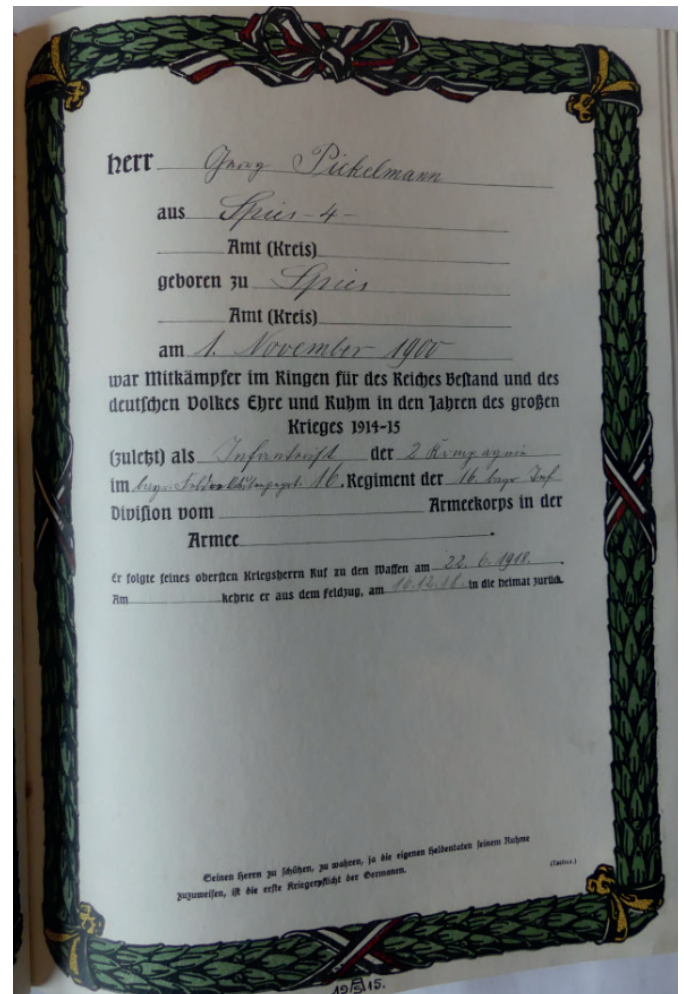 Herr Georg Pickelmann
aus Spies - 4 -
Amt (Kreis)
geboren zu Spies
Amt (Kreis)
am 1. November 1900
war Mitkämpfer im Ringen für des Reiches Bestand und des
deutschen Volkes Ehre und Ruhm in den Jahren des großen
Krieges 1914-15
(zuletzt) als Infanterist der 2 Kompagnie
im bayr. 16. Regiment der 16. bayr Inf
Division vom Armeekorps in der
Armee .
Er folgte seines obersten Kriegsherrn Ruf zu den Waffen am 22. 6. 1918. .
Am kehrte er aus dem Feldzug, am 16.12.18 in die Heimat zurück.
Seinen Herrn zu schützen, zu wahren, ja die eigenen Heldentaten seinem Ruhme
zuzuweisen, ist die erste Kriegerpflicht der Germanen. (Tacitus.)
15.